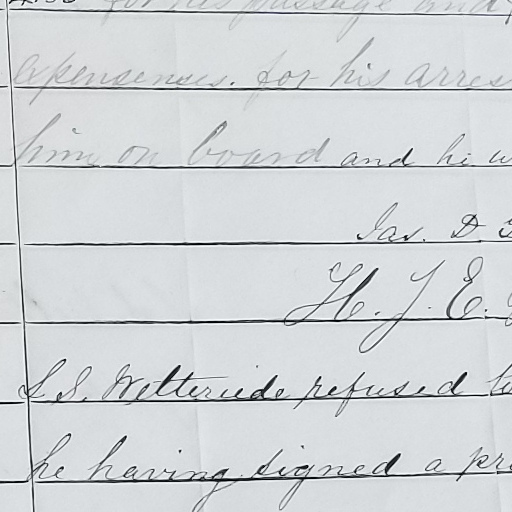 for his passage and
expensenses. for his arres
him on board and he w
Jas. D.
H. J. E.
L S. Wetteriede refused to
he having signed a pr